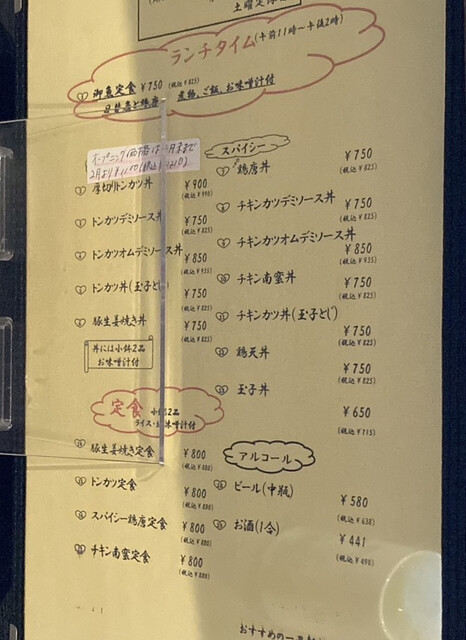 土曜定休
ランチタイム(午前11時〜午後2時)
① 御魚定食 ¥750 (税込¥825)
日替煮と焼魚 煮物、ご飯、お味噌汁付
オープニング価格は
2月より
厚切りトンカツ丼 ¥900 (税込¥990)
トンカツデミソース丼 ¥750 (税込¥825)
トンカツオムデミソース丼 ¥850 (税込¥935)
トンカツ丼(玉子とじ) ¥750 (税込¥825)
豚生姜焼き丼 ¥750 (税込¥825)
丼には小鉢2品
お味噌汁付
スパイシー
鶏唐丼 ¥750 (税込¥825)
チキンカツデミソース丼 ¥750 (税込¥825)
チキンカツオムデミソース丼 ¥850 (税込¥935)
チキン南蛮丼 ¥750 (税込¥825)
チキンカツ丼(玉子とじ) ¥750 (税込¥825)
鶏天丼 ¥750 (税込¥825)
玉子丼 ¥650 (税込¥715)
定食 小鉢2品
ライス・お味噌汁付
豚生姜焼き定食 ¥800 (税込¥880)
トンカツ定食 ¥800 (税込¥880)
スパイシー鶏唐定食 ¥800 (税込¥880)
チキン南蛮定食 ¥800 (税込¥880)
アルコール
ビール(中瓶) ¥580 (税込¥638)
お酒(1合) ¥441 (税込¥490)
おすすめの一